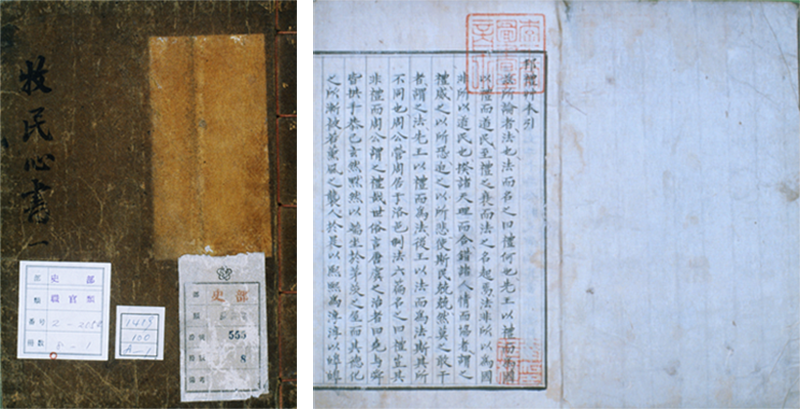 牧民心書 一
部 史部
類 職官類
番号
冊数 8-1
部 史部
555
8
邦禮艸本引
茲所論者法也法而名之曰禮何也先王以禮而為國
以禮而道民至禮之衰而法之名起焉法非所以為國
非所以道民也揆諸天理而合錯諸人情而協者謂之
禮威之以所恐迫之以所悲使斯民兢兢然莫之敢干
者謂之法先王以禮而為法後王以法而為法斯其所
不同也周公營周居于洛邑制法六篇名之曰禮豈其
非禮而周公謂之禮哉世俗言唐虞之治者曰堯與舜
皆拱手恭己玄然默然以端坐於茅茨之屋而其德化
之所漸被若薰風之襲人於是以熙熙為淳淳以皞皞